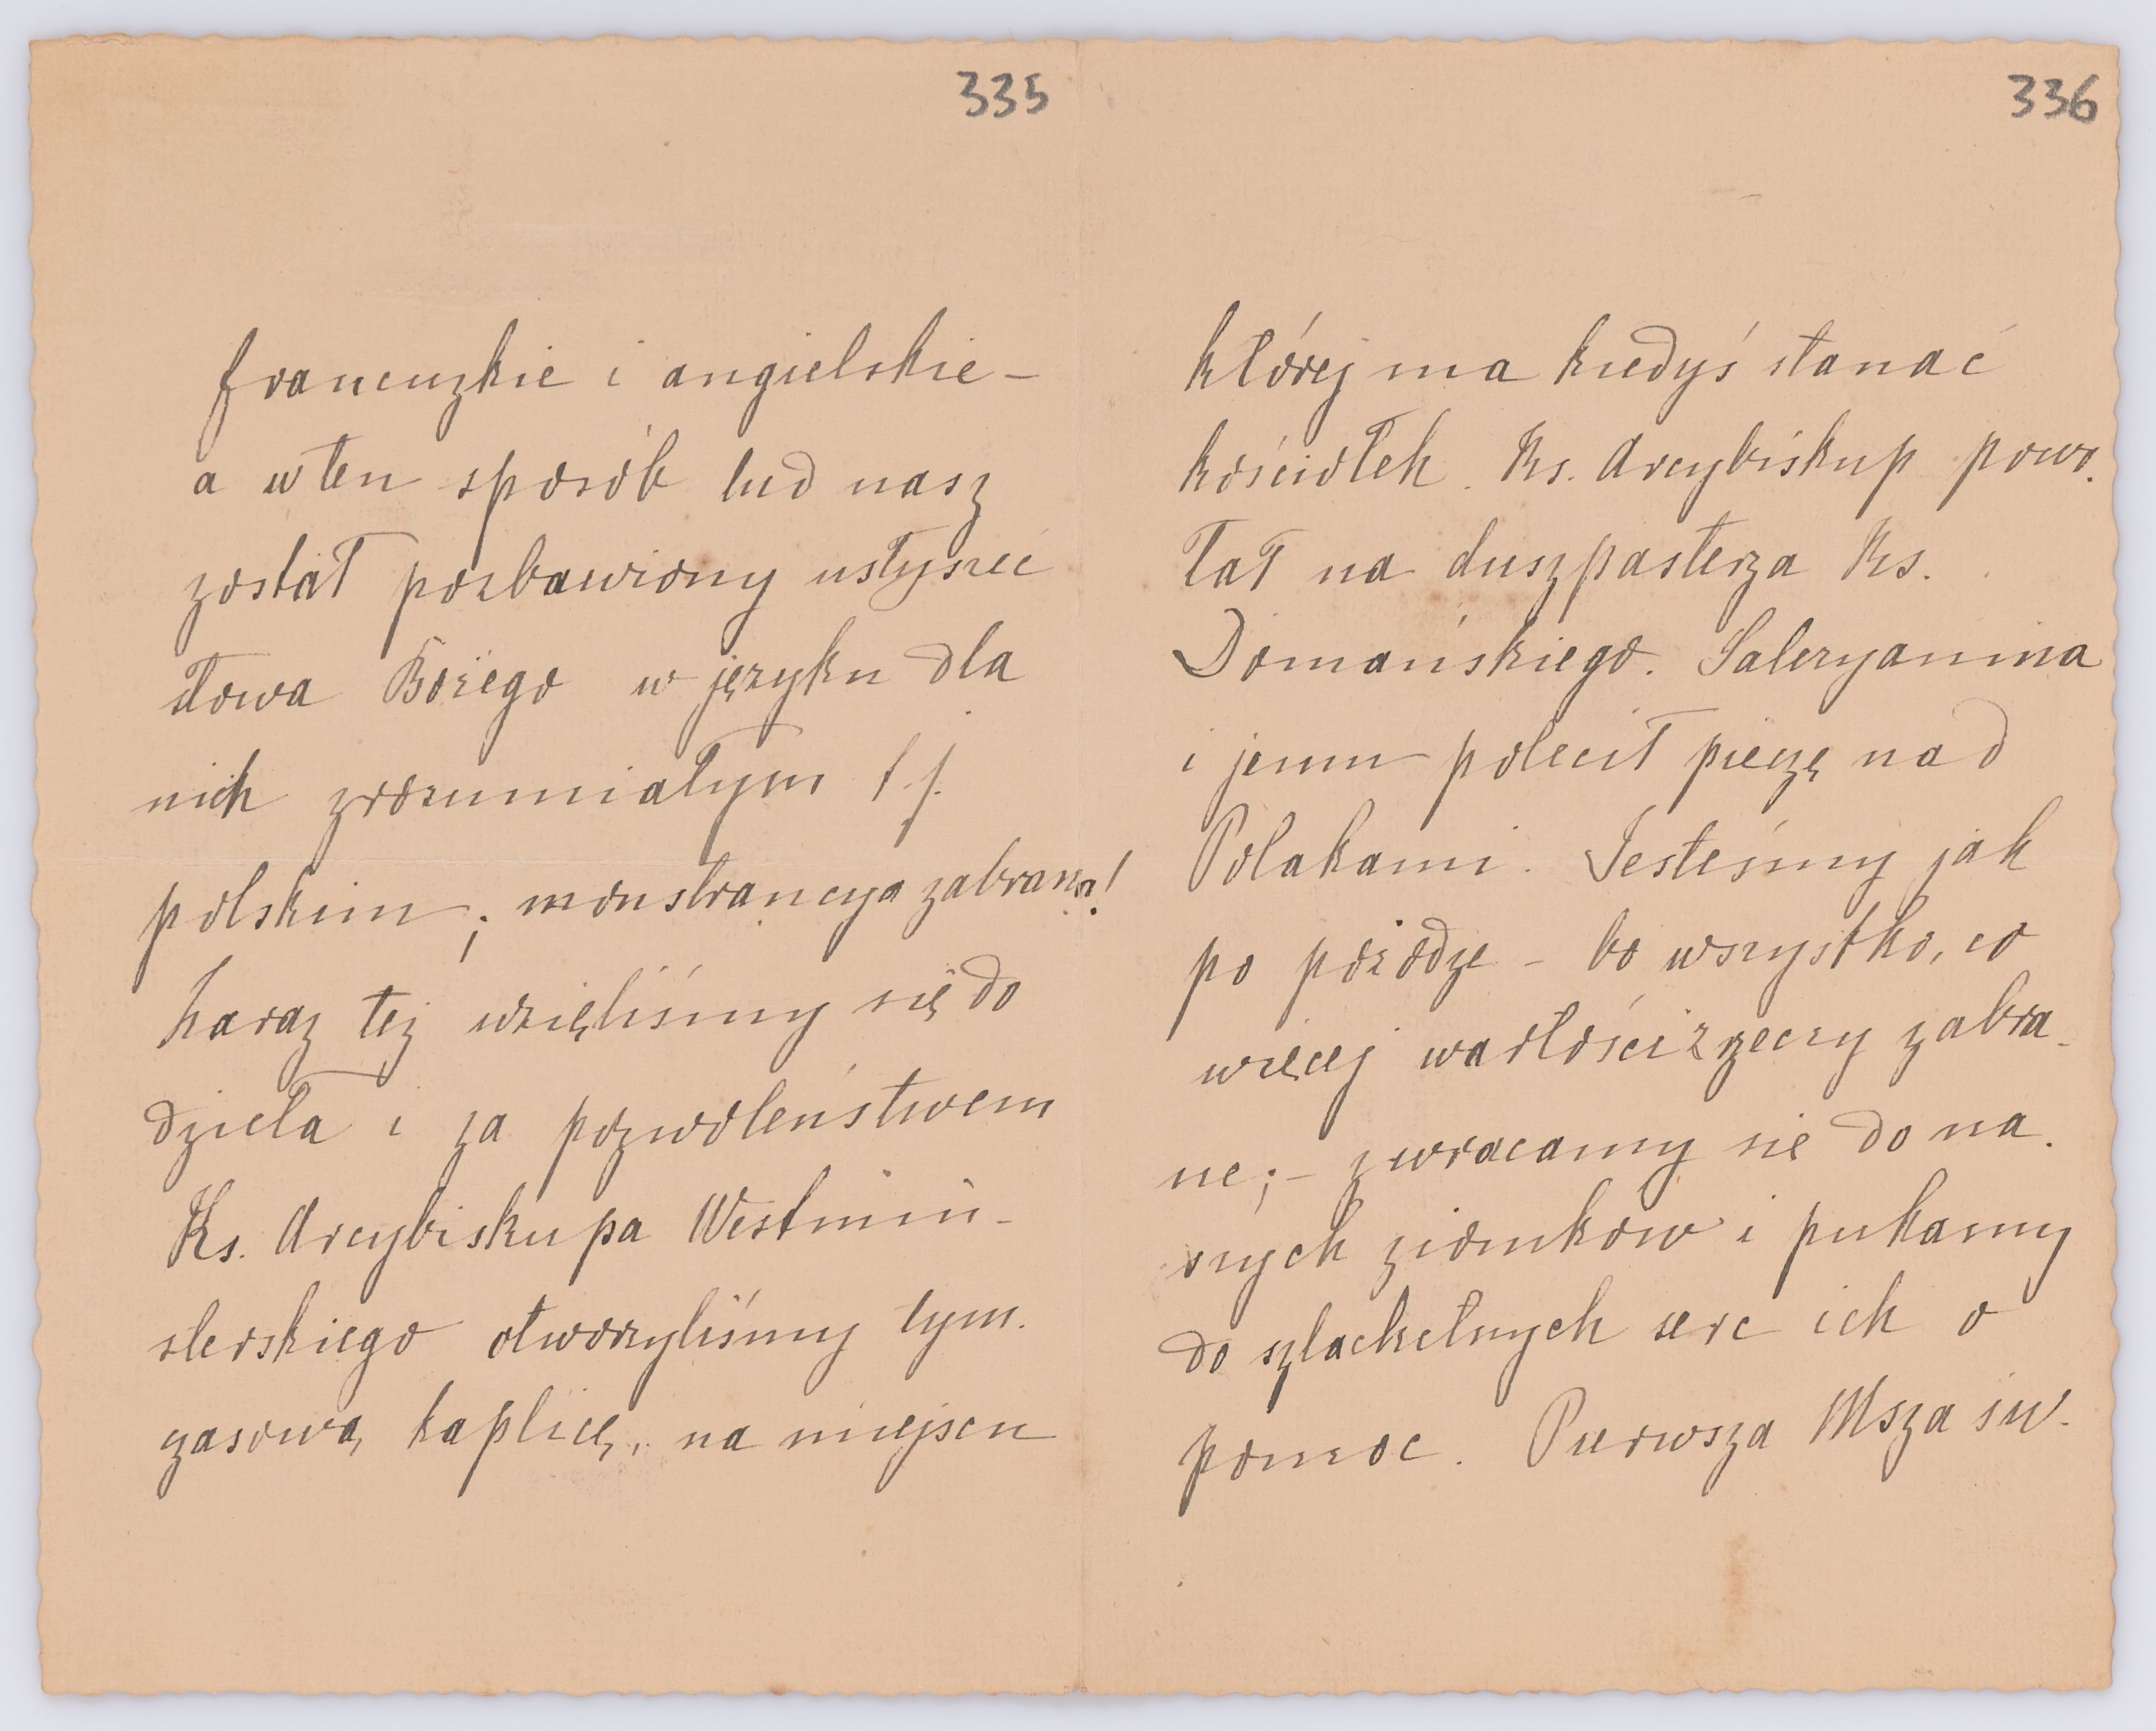 335
francuzkie i angielskie –
a w ten sposób lud nasz
został pozbawiony usłyszeć
słowa Bożego w języku dla
nich zrozumiałym t.j.
polskim; monstrancya zabrana!
Zaraz też wzięliśmy się do
dzieła i za pozwoleństwem
Ks. Arcybiskupa Westmin-
sterskiego otworzyliśmy tym-
czasową kaplicę, na miejscu
336
której ma kiedyś stanąć
kościołek. Ks. Arcybiskup powo-
łał na duszpasterza Ks.
Domańskiego. Salezyanina
i jemu polecił pieczę nad
Polakami. Jesteśmy jak
po pożodze – bo wszystko, co
więcej wartości rzeczy zabra-
ne; – zwracamy się do na-
szych ziomków i pukamy
do szlachetnych serc ich o
pomoc. Pierwsza Msza św.